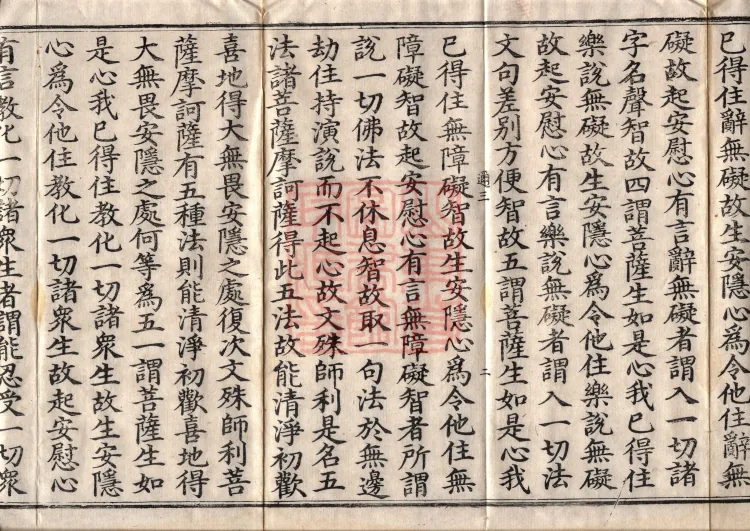 已得住辭無礙故生安隱心爲令他住辭無
礙故起安慰心有言辭無礙者謂入一切諸
字名聲智故四謂菩薩生如是心我已得住
樂說無礙故生安隱心爲令他住樂說無礙
故起安慰心有言樂說無礙者謂入一切法
文句差别方便智故五謂菩薩生如是心我
通三
二
已得住無障礙智故生安隱心爲令他住無
障礙智故起安慰心有言無障礙智者所謂
說一切佛法不休息智故取一句法於無邊
劫住持演說而不起心故文殊師利是名五
法諸菩薩摩訶薩得此五法故能清淨初歡
喜地得大無畏安隱之處復次文殊師利菩
薩摩訶薩有五種法則能清淨初歡喜地得
大無畏安隱之處何等爲五一謂菩薩生如
是心我已得住教化一切諸衆生故生安隱
心爲令他住教化一切諸衆生故起安慰心
有言教化一切諸衆生者謂能忍受一切衆